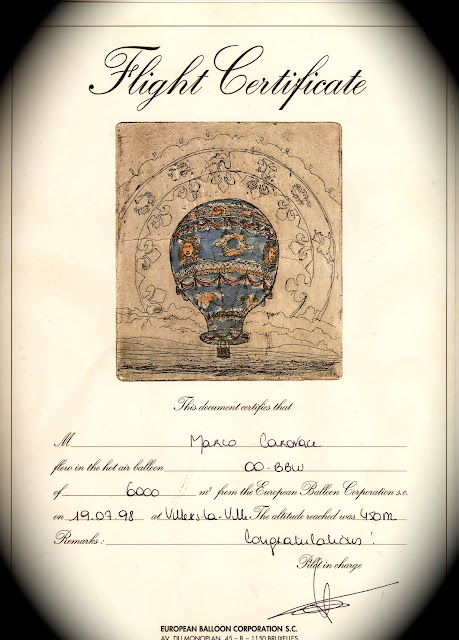 Flight Certificate
This document certifies that
M Marco
flew in the hot air balloon OO-BBW
of 6000 m³ from the European Balloon Corporation s.c.
on 19.07.98 at Villers-la-Ville. The altitude reached was 450m
Remarks : Congratulations!
Pilot in charge
EUROPEAN BALLOON CORPORATION S.C.
AV. DU MONOPLAN, 45 – B – 1150 BRUXELLES